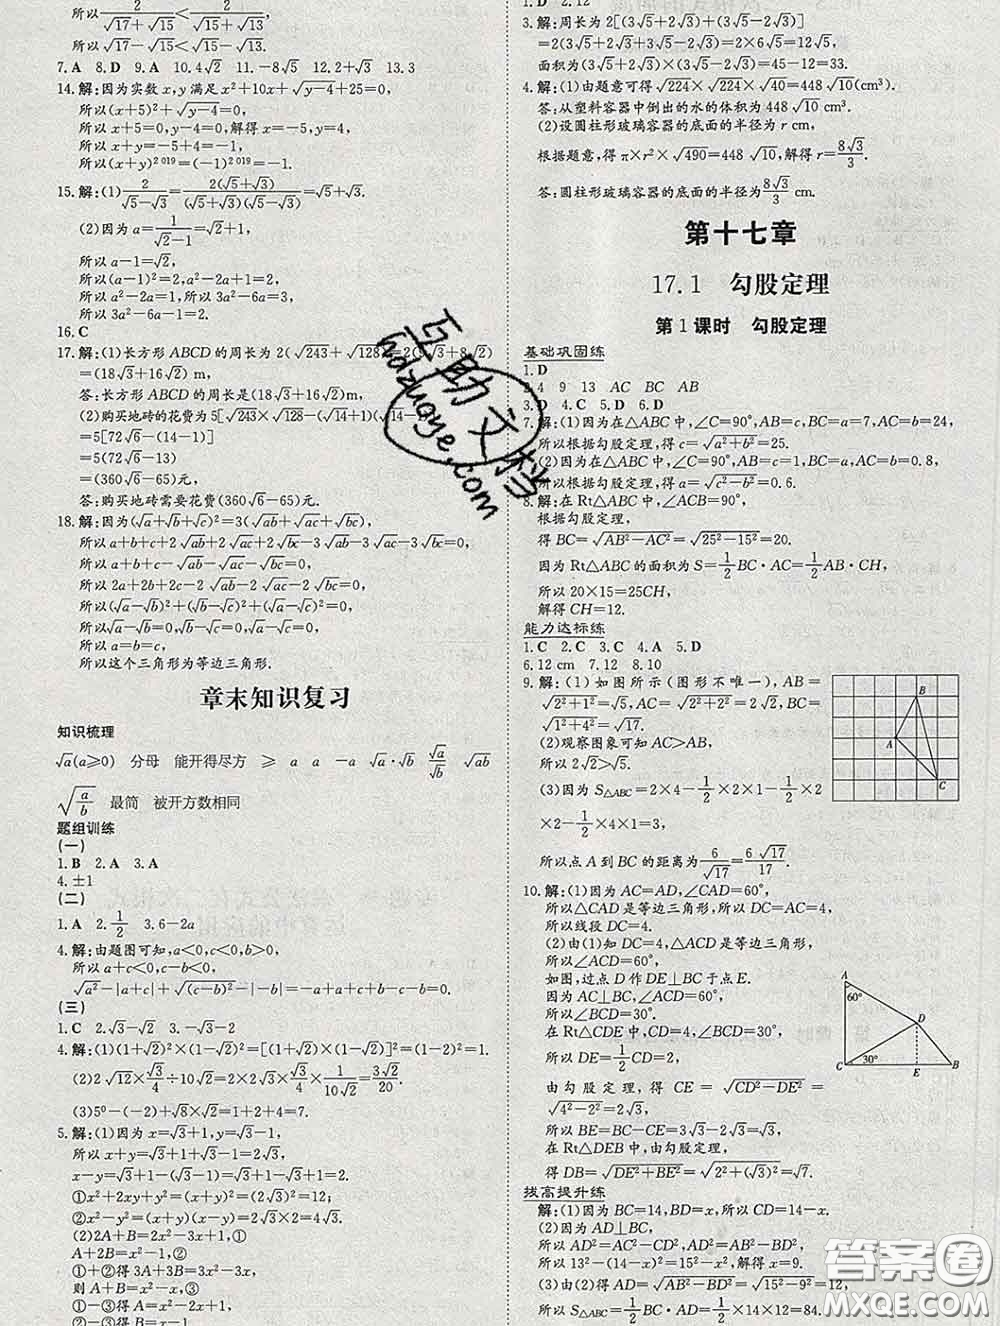 所以 2/(√17+√15)<2/(√15+√13),
所以√17-√15<√15-√13.
7.A 8.D 9.A 10.4√2 11.-8√5 12.2+√3 13.3
14.解:因为实数x,y满足x²+10x+√(y-4)+25=0,
所以(x+5)²+√(y-4)=0,
所以x+5=0,y-4=0,解得x=-5,y=4,
所以(x+y)^2019=(-1)^2019=-1.
15.解:(1)2/(√5-√3)=2(√5+√3)/((√5+√3)(√5-√3))=√5+√3.
(2)因为a=1/(√2-1)=√2+1,
所以a-1=√2,
所以(a-1)²=2,a²-2a+1=2,
所以a²-2a=1,所以3a²-6a=3,
所以3a²-6a-1=2.
16.C
17.解:(1)长方形ABCD的周长为2(√243+√128)=2(9√3+8√2)
=(18√3+16√2)m,
答:长方形ABCD的周长是(18√3+16√2)m.
(2)购买地砖的花费为5[√243×√128-(√14+1)(√14-1)]
=5[72√6-(14-1)]
=5(72√6-13)
=(360√6-65)元,
答:购买地砖需要花费(360√6-65)元.
18.解:因为(√a+√b+√c)²=3(√ab+√ac+√bc),
所以a+b+c+2√ab+2√ac+2√bc-3√ab-3√ac-3√bc=0,
所以a+b+c-√ab-√ac-√bc=0,
所以2a+2b+2c-2√ab-2√ac-2√bc=0,
所以(√a-√b)²+(√b-√c)²+(√a-√c)²=0,
所以√a-√b=0,√b-√c=0,√a-√c=0,
所以a=b=c,
所以这个三角形为等边三角形.
章末知识复习
知识梳理
√a(a≥0) 分母 能开得尽方 ≥ a a -a √a·√b √a/√b √ab
√(a/b) 最简 被开方数相同
题组训练
(一)
1.B 2.A 3.A
4.±1
(二)
1.A 2.1/2 3.6-2a
4.解:由题图可知,a<0,c<0,b>0,
所以a+c<0,c-b<0,
√a²-|a+c|+√(c-b)²-|-b|=-a+a+c+b-c-b=0.
(三)
1.C 2.√3-√2 3.-√3-2
4.解:(1)(1+√2)²×(1-√2)²=[(1+√2)×(1-√2)]²=1.
(2)2√12×√3/4÷10√2=2×2√3×√3/4×1/(10√2)=3√2/20.
(3)5⁰-(-2)+√8×√2=1+2+4=7.
5.解:(1)因为x=√3+1,y=√3-1,
所以x+y=√3+1+(√3-1)=2√3,
x-y=√3+1-(√3-1)=√3+1-√3+1=2.
①x²+2xy+y²=(x+y)²=(2√3)²=12.
②x²-y²=(x+y)(x-y)=2√3×2=4√3.
(2)2A+B=2x²+x,①
A+2B=x²-x,②
①+②得3A+3B=3x²,
则A+B=x²,③
①-③得A=2x²+x-x²=x²+x,
1.D 2.12
3.解:周长为2[(3√5+2√3)+(3√5-2√3)]
=2(3√5+2√3+3√5-2√3)=2×6√5=12√5,
面积为(3√5+2√3)×(3√5-2√3)=45-12=33.
4.解:(1)由题意可得√224×√224×√40=448√10(cm³).
答:从塑料容器中倒出的水的体积为448√10 cm³.
(2)设圆柱形玻璃容器的底面的半径为r cm,
根据题意,得π×r²×√490=448√10,解得r=8√3/3.
答:圆柱形玻璃容器的底面的半径为8√3/3 cm.
第十七章
17.1 勾股定理
第1课时 勾股定理
基础巩固练
1.D
2.4 9 13 AC BC AB
3.D 4.C 5.D 6.D
7.解:(1)因为在△ABC中,∠C=90°,BC=a=7,AC=b=24,
所以根据勾股定理,得c=√(a²+b²)=25.
(2)因为在△ABC中,∠C=90°,AB=c=1,AC=b=0.8,
所以根据勾股定理,得a=√(c²-b²)=0.6.
8.解:在Rt△ABC中,∠ACB=90°,
根据勾股定理,
得BC=√(AB²-AC²)=√(25²-15²)=20.
因为Rt△ABC的面积为S=1/2BC·AC=1/2AB·CH,
所以20×15=25CH,
解得CH=12.
能力达标练
1.C 2.C 3.C 4.A 5.D
6.12 cm 7.12 8.10
9.解:(1)如图所示(图形不唯一),AB=
√(2²+1²)=√5,AC=√(2²+2²)=2√2,BC=
√(1²+4²)=√17.
(2)观察图象可知AC>AB,
所以2√2>√5.
(3)因为S△ABC=2×4-1/2×2×1-1/2×2
×2-1/2×4×1=3,
所以点A到BC的距离为6/√17=6√17/17.
A
B
C
10.解:(1)因为AC=AD,∠CAD=60°,
所以△CAD是等边三角形,所以DC=AC=4.
所以线段DC=4.
(2)由(1)知DC=4,△CAD是等边三角形,
所以∠ACD=60°,
如图,过点D作DE⊥BC于点E.
因为AC⊥BC,∠ACD=60°,
所以∠BCD=30°.
在Rt△CDE中,CD=4,∠BCD=30°,
所以DE=1/2CD=2,
由勾股定理,得CE=√(CD²-DE²)=
√(4²-2²)=2√3,
所以BE=BC-CE=3√3-2√3=√3.
在Rt△DEB中,由勾股定理,
得DB=√(DE²+BE²)=√(2²+(√3)²)=√7.
A
60°
D
C
30°
E
B
拔高提升练
解:(1)因为BC=14,BD=x,所以DC=14-x.
(2)因为AD⊥BC,
所以AD²=AC²-CD²,AD²=AB²-BD²,
所以13²-(14-x)²=15²-x²,解得x=9.
(3)由(2)得AD=√(AB²-BD²)=√(15²-9²)=12,
所以S△ABC=1/2BC·AD=1/2×14×12=84.
互助文档
hdzuoye.com
答案圈
MXQE.COM